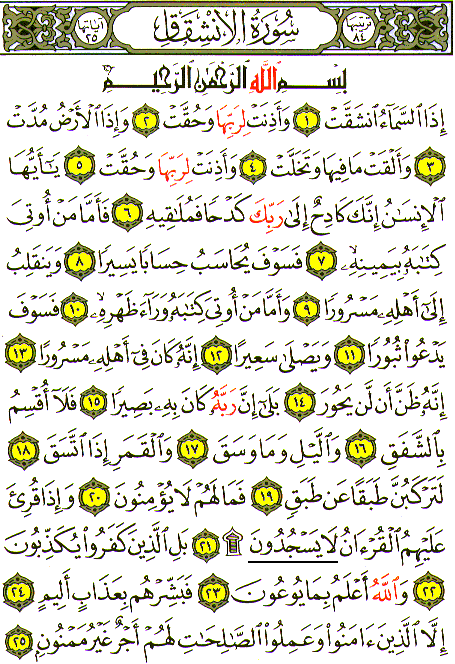 ترتيبها ٨٤ سُورَةُ الِانشِقَاقِ آياتها ٢٥
بِسْمِ ٱللَّهِ ٱلرَّحْمَٰنِ ٱلرَّحِيمِ
إِذَا ٱلسَّمَآءُ ٱنشَقَّتْ ١ وَأَذِنَتْ لِرَبِّهَا وَحُقَّتْ ٢ وَإِذَا ٱلْأَرْضُ مُدَّتْ
٣ وَأَلْقَتْ مَا فِيهَا وَتَخَلَّتْ ٤ وَأَذِنَتْ لِرَبِّهَا وَحُقَّتْ ٥ يَٰٓأَيُّهَا
ٱلْإِنسَٰنُ إِنَّكَ كَادِحٌ إِلَىٰ رَبِّكَ كَدْحًا فَمُلَٰقِيهِ ٦ فَأَمَّا مَنْ أُوتِىَ
كِتَٰبَهُۥ بِيَمِينِهِۦ ٧ فَسَوْفَ يُحَاسَبُ حِسَابًا يَسِيرًا ٨ وَيَنقَلِبُ
إِلَىٰٓ أَهْلِهِۦ مَسْرُورًا ٩ وَأَمَّا مَنْ أُوتِىَ كِتَٰبَهُۥ وَرَآءَ ظَهْرِهِۦ ١٠ فَسَوْفَ
يَدْعُوا۟ ثُبُورًا ١١ وَيَصْلَىٰ سَعِيرًا ١٢ إِنَّهُۥ كَانَ فِىٓ أَهْلِهِۦ مَسْرُورًا ١٣
إِنَّهُۥ ظَنَّ أَن لَّن يَحُورَ ١٤ بَلَىٰٓ إِنَّ رَبَّهُۥ كَانَ بِهِۦ بَصِيرًا ١٥ فَلَآ أُقْسِمُ
بِٱلشَّفَقِ ١٦ وَٱلَّيْلِ وَمَا وَسَقَ ١٧ وَٱلْقَمَرِ إِذَا ٱتَّسَقَ ١٨
لَتَرْكَبُنَّ طَبَقًا عَن طَبَقٍ ١٩ فَمَا لَهُمْ لَا يُؤْمِنُونَ ٢٠ وَإِذَا قُرِئَ
عَلَيْهِمُ ٱلْقُرْءَانُ لَا يَسْجُدُونَ ۩ ٢١ بَلِ ٱلَّذِينَ كَفَرُوا۟ يُكَذِّبُونَ
٢٢ وَٱللَّهُ أَعْلَمُ بِمَا يُوعُونَ ٢٣ فَبَشِّرْهُم بِعَذَابٍ أَلِيمٍ ٢٤
إِلَّا ٱلَّذِينَ ءَامَنُوا۟ وَعَمِلُوا۟ ٱلصَّٰلِحَٰتِ لَهُمْ أَجْرٌ غَيْرُ مَمْنُونٍۭ ٢٥